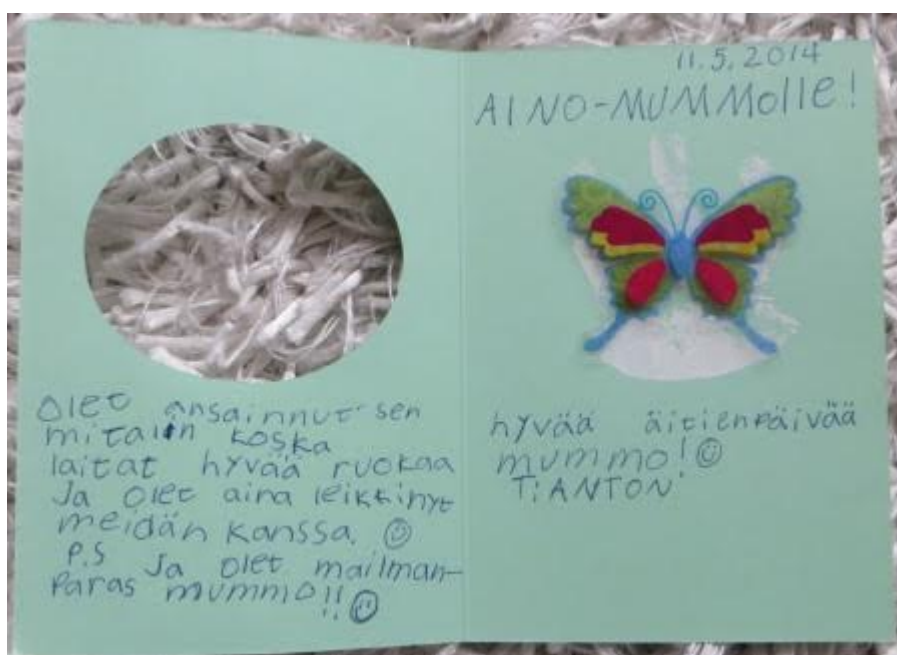 Olet ansainnut sen
mitalin koska
laitat hyvää ruokaa
Ja olet aina leikkinyt
meidän kanssa. ☺
P.S Ja olet mailman-
Paras mummo!! ☺
11.5.2014
AINO-MUMMOlle!
hyvää äitienpäivää
mummo! ☺
T: ANTON